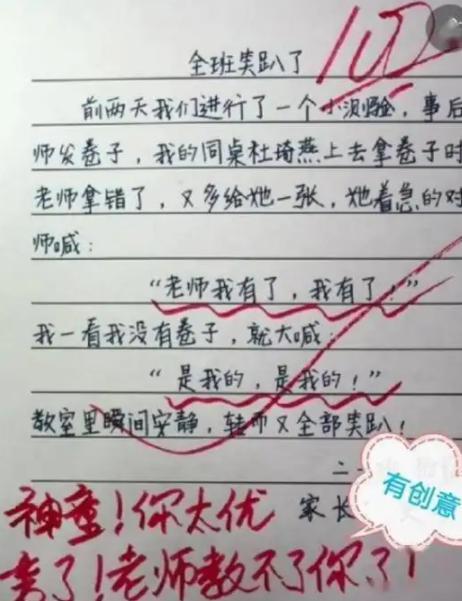 全班笑趴了
100
前两天我们进行了一个小测验，事后
师发卷子，我的同桌杜琦燕上去拿卷子时
老师拿错了，又多给她一张，她着急的对
师喊：
“老师我有了，我有了！”
我一看我没有卷子，就大喊：
“是我的，是我的！”
教室里瞬间安静，转而又全部笑趴！
二
家长
有创意
神童！你太优
秀了！老师教不了你了！